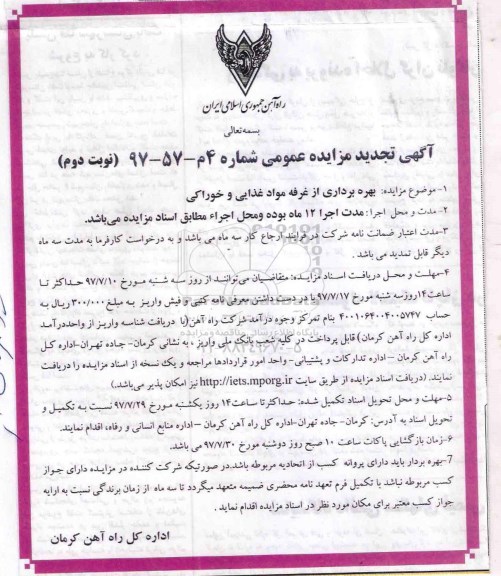 راه‌آهن جمهوری اسلامی ایران
بسمه‌تعالی
آگهی تجدید مزایده عمومی شماره ۴م-۵۷-۹۷ (نوبت دوم)
۱-موضوع مزایده: بهره برداری از غرفه مواد غذایی و خوراکی
۲-مدت و محل اجرا: مدت اجرا ۱۲ ماه بوده ومحل اجراء مطابق اسناد مزایده می‌باشد.
۳-مدت اعتبار ضمانت نامه شرکت در فرایند ارجاع کار سه ماه می باشد و به درخواست کارفرما به مدت سه ماه
دیگر قابل تمدید می باشد .
۴-مهلت و محل دریافت اسناد مزایده: متقاضیان می‌توانند از روز سه شنبه مورخ ۹۷/۷/۱۰ حداکثر تا
ساعت۱۴روزسه شنبه مورخ ۹۷/۷/۱۷ با در دست داشتن معرفی نامه کتبی و فیش واریز به مبلغ۳۰۰/۰۰۰ ریال به
حساب ۴۰۰۱۰۶۴۰۰۴۰۰۵۷۴۷ بنام تمرکز وجوه درآمد شرکت راه آهن(با دریافت شناسه واریز از واحددرآمد
اداره کل راه آهن کرمان) قابل پرداخت در کلیه شعب بانک ملی واریز ، به نشانی کرمان- جاده تهران-اداره کل
راه آهن کرمان – اداره تدارکات و پشتیبانی- واحد امور قراردادها مراجعه و یک نسخه از اسناد مزایده را دریافت
نمایند. (دریافت اسناد مزایده از طریق سایت http://iets.mporg.ir نیز امکان پذیر می‌باشد.)
۵-مهلت و محل تحویل اسناد تکمیل شده: حداکثرتا ساعت۱۴ روز یکشنبه مورخ ۹۷/۷/۲۹ نسبت به تکمیل و
تحویل اسناد به آدرس: کرمان-جاده تهران-اداره کل راه آهن کرمان – اداره منابع انسانی و رفاه، اقدام نمایند.
۶-زمان بازگشایی پاکات ساعت ۱۰ صبح روز دوشنبه مورخ ۹۷/۷/۳۰ می باشد.
7-بهره بردار باید دارای پروانه کسب از اتحادیه مربوطه باشد.در صورتیکه شرکت کننده در مزایده دارای جواز
کسب مربوطه نباشد با تکمیل فرم تعهد نامه محضری ضمیمه متعهد میگردد تا سه ماه از زمان برندگی نسبت به ارایه
جواز کسب معتبر برای مکان مورد نظر در اسناد مزایده اقدام نماید .
اداره کل راه آهن کرمان